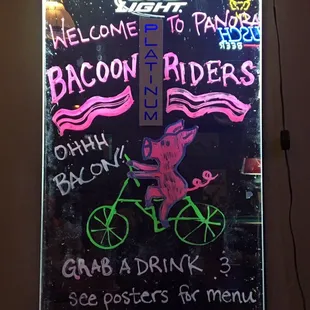 LIGHT.
WELCOME TO PANORA
PLATINUM
BEER
BACOON RIDERS
OHHH
BACON"
GRAB A DRINK &
SEE POSTERS FOR MENU